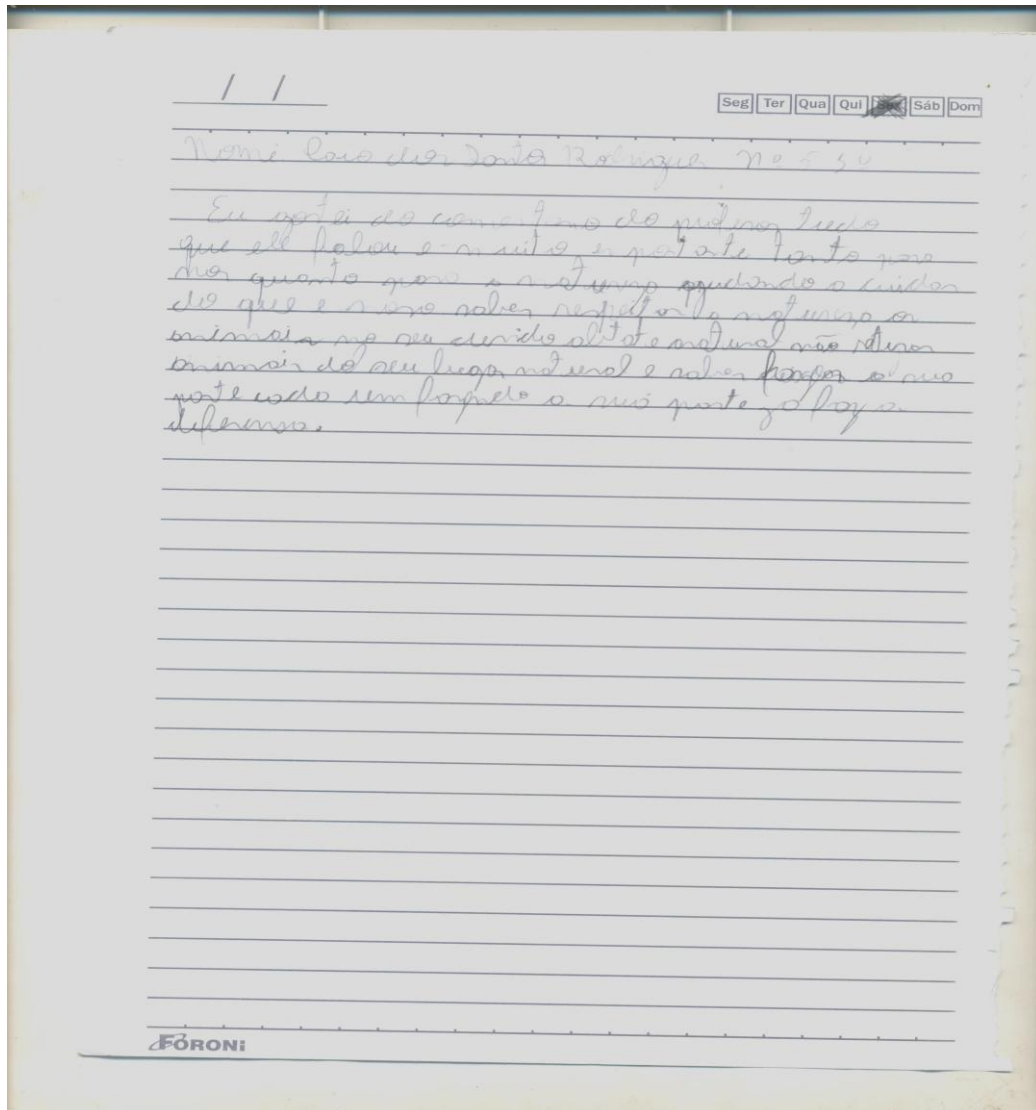 / /
Seg Ter Qua Qui Sáb Dom
Nome dos Santos Rodrigues Nº
Eu gostei do comentario do profesor tudo
que ele falou e muito enportate tanto para
nos quanto para a naturesa ajudando a cuidar
do que e noso saber respeitar a naturesa os
animais no seu devido abitate natural não retirar
animais do seu lugar natural e saber fazer a sua
parte cada um fazendo a sua parte ja faz a
diferensa.
FORONI